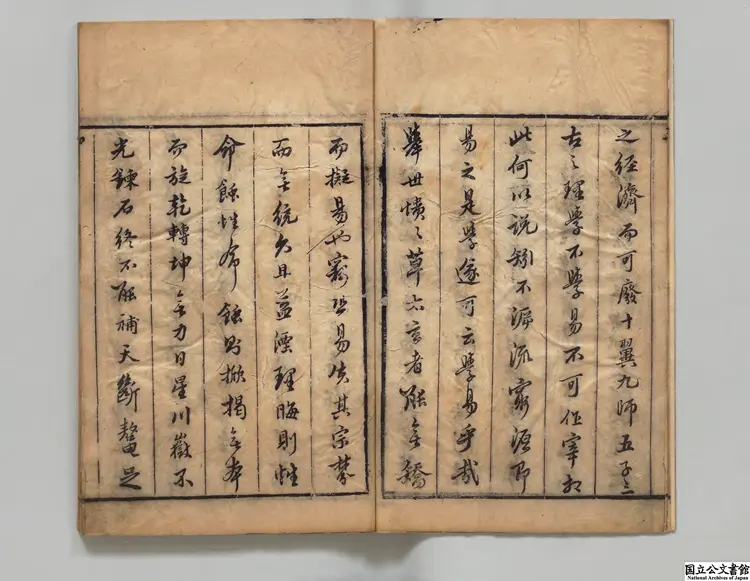 之經濟而可廢十翼九師五子三
古之理學不學易不可任宰相
此何以說矧不泝流窮源即
易之是學遂可云學易乎哉
舉世憒〻草太玄者能無矯
而擬易也竊恐易失其宗棼
而無統久且益湮理晦則性
命蝕性命蝕則掀揭無本
而旋乾轉坤無力日星川嶽不
光鍊石終不能補天斷鼇足
国立公文書館
National Archives of Japan